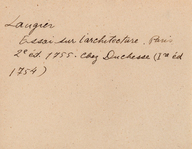 Laugier
Essai sur l'architecture. Paris
2e éd. 1755. Chez Duchesne (1re éd
1754)